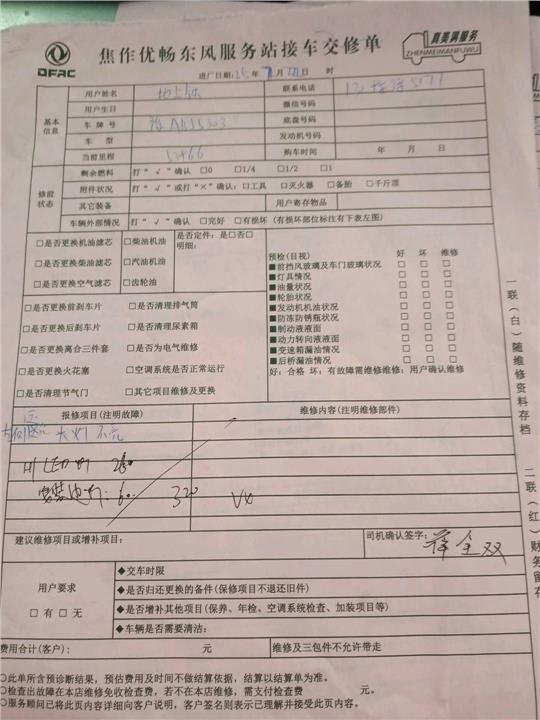 DFAC
焦作优畅东风服务站接车交修单
真美满服务
ZHENMEIMANFUWU
进厂日期:25年 月 日 时
基本信息
用户姓名 地上铁 联系电话
用户生日 微信号码
车牌号 底盘号码
车型 发动机号码
当前里程 购车时间 年 月 日
修前状态
剩余燃料 打“√”确认 □0 □1/4 □1/2 □1
附件状况 打“√”或打“×”确认:□工具 □灭火器 □备胎 □千斤顶
其它装备 用户寄存物品
车辆外部情况 打“√”确认 □完好 □有损坏(有损坏部位标注有下表左图)
□是否更换机油滤芯 □柴油机油 是否定件:是□否□
□是否更换柴油滤芯 □汽油机油 明细:
□是否更换空气滤芯 □齿轮油
□是否更换前刹车片 □是否清理排气筒
□是否更换后刹车片 □是否清理尿素箱
□是否更换离合三件套 □是否为电气维修
□是否更换火花塞 □空调系统是否正常运行
□是否清理节气门 □其它项目维修及更换
预检(目视) 好 坏 维修
■前挡风玻璃及车门玻璃状况 □ □ □
■灯具情况 □ □ □
■油量状况 □ □ □
■轮胎状况 □ □ □
■发动机机油状况 □ □ □
■防冻防锈瓶状况 □ □ □
■制动液液面 □ □ □
■动力转向液液面 □ □ □
■变速箱漏油情况 □ □ □
■后桥漏油情况 □ □ □
好:合格 坏:有故障需维修维修:用户确认维修
报修项目(注明故障) 维修内容(注明维修部件)
大灯不亮
H1 LED灯
320
建议维修项目或增补项目:
司机确认签字: 蒋全双
用户要求
□有 □无
◆交车时限
◆是否归还更换的备件(保修项目不退还旧件)
◆是否增补其他项目(保养、年检、空调系统检查、加装项目等)
◆车辆是否需要清洁:
费用合计(客户): 元 维修及三包件不允许带走
○此单所含预诊断结果,预估费用及时间不做结算依据,结算以结算单为准。
○检查出故障在本店维修免收检查费,若不在本店维修,需支付检查费 元。
○服务顾问已将此页内容详细向客户说明,客户签名则表示已理解并接受此页内容。
一联(白)随维修资料存档
二联(红)财务留存